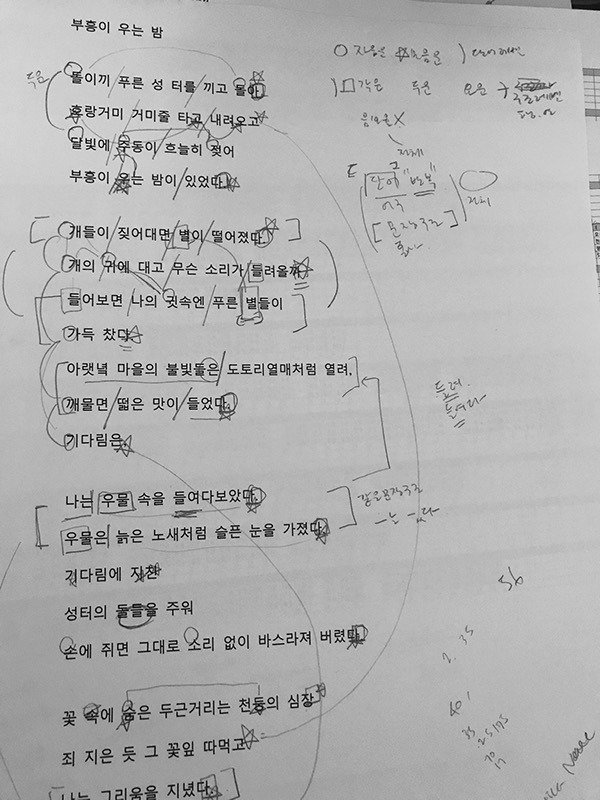 부흥이 우는 밤
돌이끼 푸른 성 터를 끼고 돌아
호랑거미 거미줄 타고 내려오고
달빛에 중동이 흐늘히 젖어
부흥이 우는 밤이 있었다.
개들이 짖어대면 별이 떨어졌다.
개의 귀에 대고 무슨 소리가 들려올까
들어보면 나의 귓속엔 푸른 별들이
가득 찼다
아랫녘 마을의 불빛들은 도토리열매처럼 열려,
깨물면 떫은 맛이 들었다.
기다림은
나는 우물 속을 들여다보았다.
우물은 늙은 노새처럼 슬픈 눈을 가졌다.
기다림에 지친
성터의 돌들을 주워
손에 쥐면 그대로 소리 없이 바스라져 버렸다.
꽃 속에 숨은 두근거리는 천둥의 심장
죄 지은 듯 그 꽃잎 따먹고
나는 그리움을 지녔다.
두운
음보율 X
전체
단어 "반복"
어구
[문장구조]
같은문장구조
56
2. 35